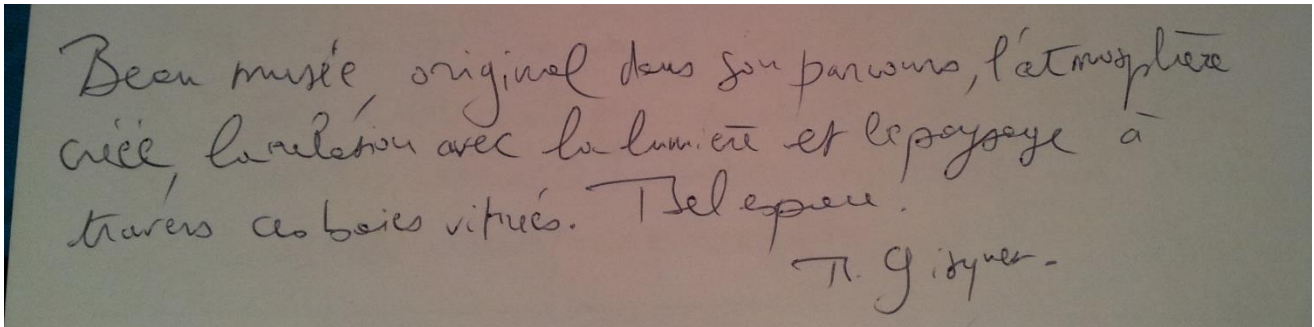 Beau musée, original dans son parcours, l'atmosphère
créée, la relation avec la lumière et le paysage à
travers ces baies vitrées. Bel espace.